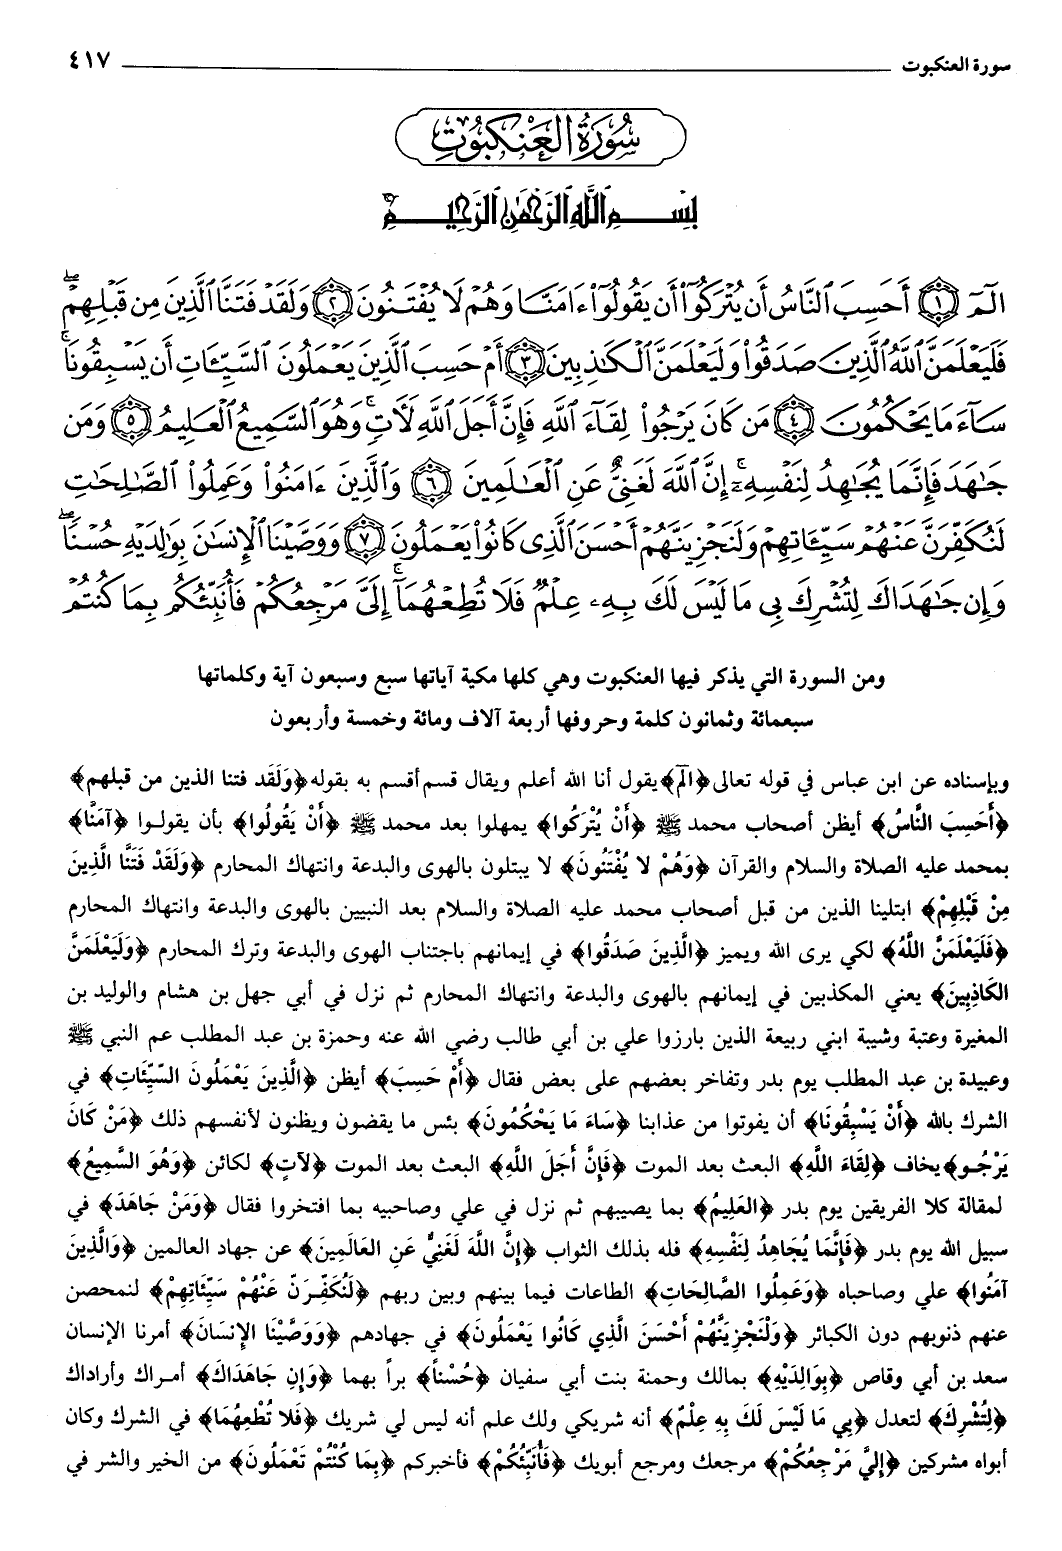 سورة العنكبوت ٤١٧
سُورَةُ العَنكَبُوتِ
بِسْمِ اللَّهِ الرَّحْمَٰنِ الرَّحِيمِ
الٓمٓ ١ أَحَسِبَ ٱلنَّاسُ أَن يُتْرَكُوٓا۟ أَن يَقُولُوٓا۟ ءَامَنَّا وَهُمْ لَا يُفْتَنُونَ ٢ وَلَقَدْ فَتَنَّا ٱلَّذِينَ مِن قَبْلِهِمْ ۖ
فَلَيَعْلَمَنَّ ٱللَّهُ ٱلَّذِينَ صَدَقُوا۟ وَلَيَعْلَمَنَّ ٱلْكَٰذِبِينَ ٣ أَمْ حَسِبَ ٱلَّذِينَ يَعْمَلُونَ ٱلسَّيِّـَٔاتِ أَن يَسْبِقُونَا ۚ
سَآءَ مَا يَحْكُمُونَ ٤ مَن كَانَ يَرْجُوا۟ لِقَآءَ ٱللَّهِ فَإِنَّ أَجَلَ ٱللَّهِ لَـَٔاتٍ ۚ وَهُوَ ٱلسَّمِيعُ ٱلْعَلِيمُ ٥ وَمَن
جَٰهَدَ فَإِنَّمَا يُجَٰهِدُ لِنَفْسِهِۦٓ ۚ إِنَّ ٱللَّهَ لَغَنِىٌّ عَنِ ٱلْعَٰلَمِينَ ٦ وَٱلَّذِينَ ءَامَنُوا۟ وَعَمِلُوا۟ ٱلصَّٰلِحَٰتِ
لَنُكَفِّرَنَّ عَنْهُمْ سَيِّـَٔاتِهِمْ وَلَنَجْزِيَنَّهُمْ أَحْسَنَ ٱلَّذِى كَانُوا۟ يَعْمَلُونَ ٧ وَوَصَّيْنَا ٱلْإِنسَٰنَ بِوَٰلِدَيْهِ حُسْنًا ۖ
وَإِن جَٰهَدَاكَ لِتُشْرِكَ بِى مَا لَيْسَ لَكَ بِهِۦ عِلْمٌ فَلَا تُطِعْهُمَآ ۚ إِلَىَّ مَرْجِعُكُمْ فَأُنَبِّئُكُم بِمَا كُنتُمْ
ومن السورة التي يذكر فيها العنكبوت وهي كلها مكية آياتها سبع وسبعون آية وكلماتها
سبعمائة وثمانون كلمة وحروفها أربعة آلاف ومائة وخمسة وأربعون
وبإسناده عن ابن عباس في قوله تعالى ﴿الٓمٓ﴾ يقول أنا الله أعلم ويقال قسم أقسم به بقوله ﴿وَلَقَد فتنا الذين من قبلهم﴾
﴿أَحَسِبَ النَّاسُ﴾ أيظن أصحاب محمد ﷺ ﴿أَنْ يُتْرَكُوا﴾ يمهلوا بعد محمد ﷺ ﴿أَنْ يَقُولُوا﴾ بأن يقولوا ﴿آمَنَّا﴾
بمحمد عليه الصلاة والسلام والقرآن ﴿وَهُمْ لا يُفْتَنُونَ﴾ لا يبتلون بالهوى والبدعة وانتهاك المحارم ﴿وَلَقَدْ فَتَنَّا الَّذِينَ
مِنْ قَبْلِهِمْ﴾ ابتلينا الذين من قبل أصحاب محمد عليه الصلاة والسلام بعد النبيين بالهوى والبدعة وانتهاك المحارم
﴿فَلَيَعْلَمَنَّ اللَّهُ﴾ لكي يرى الله ويميز ﴿الَّذِينَ صَدَقُوا﴾ في إيمانهم باجتناب الهوى والبدعة وترك المحارم ﴿وَلَيَعْلَمَنَّ
الكَاذِبِينَ﴾ يعني المكذبين في إيمانهم بالهوى والبدعة وانتهاك المحارم ثم نزل في أبي جهل بن هشام والوليد بن
المغيرة وعتبة وشيبة ابني ربيعة الذين بارزوا علي بن أبي طالب رضي الله عنه وحمزة بن عبد المطلب عم النبي ﷺ
وعبيدة بن عبد المطلب يوم بدر وتفاخر بعضهم على بعض فقال ﴿أَمْ حَسِبَ﴾ أيظن ﴿الَّذِينَ يَعْمَلُونَ السَّيِّئَاتِ﴾ في
الشرك بالله ﴿أَنْ يَسْبِقُونَا﴾ أن يفوتوا من عذابنا ﴿سَاءَ مَا يَحْكُمُونَ﴾ بئس ما يقضون ويظنون لأنفسهم ذلك ﴿مَنْ كَانَ
يَرْجُو﴾ يخاف ﴿لِقَاءَ اللَّهِ﴾ البعث بعد الموت ﴿فَإِنَّ أَجَلَ اللَّهِ﴾ البعث بعد الموت ﴿لآتٍ﴾ لكائن ﴿وَهُوَ السَّمِيعُ﴾
لمقالة كلا الفريقين يوم بدر ﴿العَلِيمُ﴾ بما يصيبهم ثم نزل في علي وصاحبيه بما افتخروا فقال ﴿وَمَنْ جَاهَدَ﴾ في
سبيل الله يوم بدر ﴿فَإِنَّمَا يُجَاهِدُ لِنَفْسِهِ﴾ فله بذلك الثواب ﴿إِنَّ اللَّهَ لَغَنِيٌّ عَنِ العَالَمِينَ﴾ عن جهاد العالمين ﴿وَالَّذِينَ
آمَنُوا﴾ علي وصاحباه ﴿وَعَمِلُوا الصَّالِحَاتِ﴾ الطاعات فيما بينهم وبين ربهم ﴿لَنُكَفِّرَنَّ عَنْهُمْ سَيِّئَاتِهِمْ﴾ لنمحصن
عنهم ذنوبهم دون الكبائر ﴿وَلَنَجْزِيَنَّهُمْ أَحْسَنَ الَّذِي كَانُوا يَعْمَلُونَ﴾ في جهادهم ﴿وَوَصَّيْنَا الإِنسَانَ﴾ أمرنا الإنسان
سعد بن أبي وقاص ﴿بِوَالِدَيْهِ﴾ بمالك وحمنة بنت أبي سفيان ﴿حُسْناً﴾ براً بهما ﴿وَإِنِ جَاهَدَاكَ﴾ أمراك وأراداك
﴿لِتُشْرِكَ﴾ لتعدل ﴿بِي مَا لَيْسَ لَكَ بِهِ عِلْمٌ﴾ أنه شريكي ولك علم أنه ليس لي شريك ﴿فَلا تُطْعِهُمَا﴾ في الشرك وكان
أبواه مشركين ﴿إِلَيَّ مَرْجِعُكُمْ﴾ مرجعك ومرجع أبويك ﴿فَأُنَبِّئُكُمْ﴾ فأخبركم ﴿بِمَا كُنْتُمْ تَعْمَلُونَ﴾ من الخير والشر في